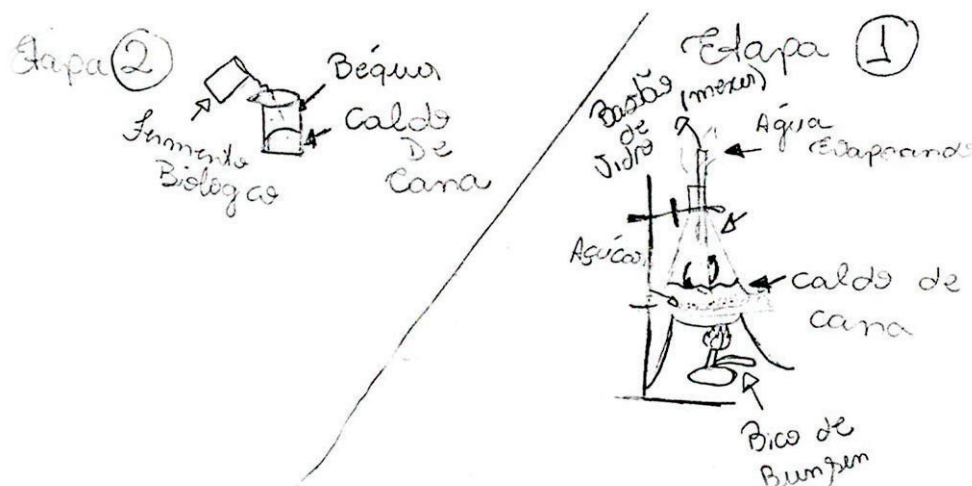 Etapa 2
Béquer
Caldo
De
Cana
Fermento
Biologico
Etapa 1
Bastão
de
Vidro
(mexer)
Água
Evaporando
Açúcar
Caldo de
cana
Bico de
Bunsen